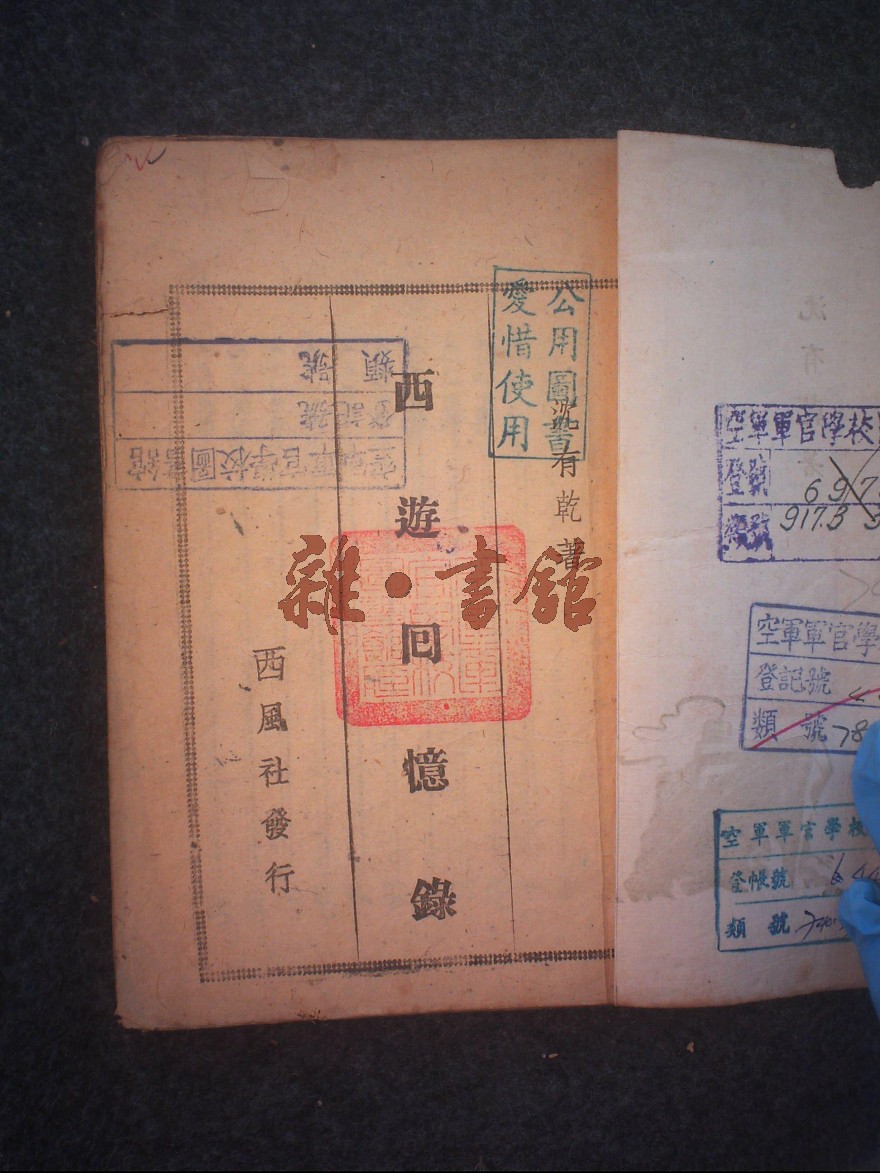 沈有乾著
西遊回憶錄
西風社發行
公用圖書
愛惜使用
雜·書館
空軍軍官學校圖書館
登記號
類號
沈有
空軍軍官學校
登號
697
917.3
空軍軍官學
登記號
類號 78
空軍軍官學校
登帳號 644
類號